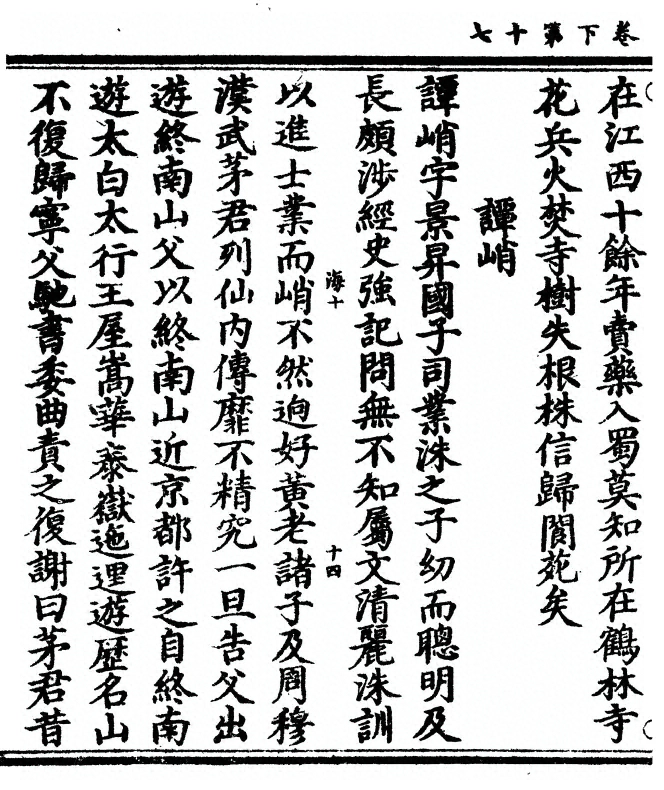 卷下第十七
在江西十餘年賣藥入蜀莫知所在鶴林寺
花兵火焚寺樹失根株信歸閬苑矣
譚峭
譚峭字景昇國子司業洙之子幼而聰明及
長頗涉經史強記問無不知屬文清麗洙訓
海十
十四
以進士業而峭不然逈好黃老諸子及周穆
漢武茅君列仙內傳靡不精究一旦告父出
遊終南山父以終南山近京都許之自終南
遊太白太行王屋嵩華泰嶽迤逦遊歷名山
不復歸寧父馳書委曲責之復謝曰茅君昔